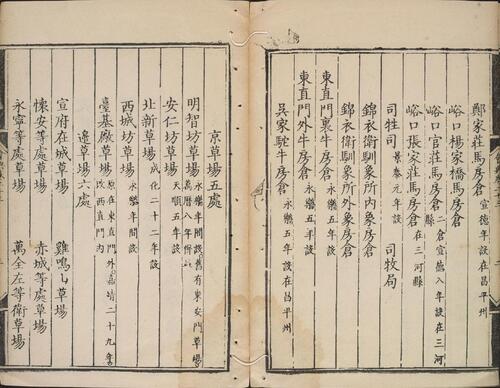 鄭家莊馬房倉宣德年設在昌平州
峪口楊家橋馬房倉
峪口官莊馬房倉二倉宣德八年設在三河縣
峪口張家莊馬房倉在三河縣
司牲司景泰元年設 司牧局
錦衣衛馴象所内象房倉
錦衣衛馴象所外象房倉
東直門裏牛房倉永樂五年設
東直門外牛房倉永樂五年設
吳家駝牛房倉永樂五年設在昌平州
京草場五處
明智坊草場永樂年間設舊有東安門草場萬曆八年併
安仁坊草場天順五年設
北新草場成化二十二年設
西城坊草場永樂年間設
臺基厰草場原在東直門外嘉靖二十九年改西直門内
邊草場六處
宣府在城草場 雞鳴山草場
懷安等處草場 赤城等處草場
永寧等處草場 萬全左等衛草場